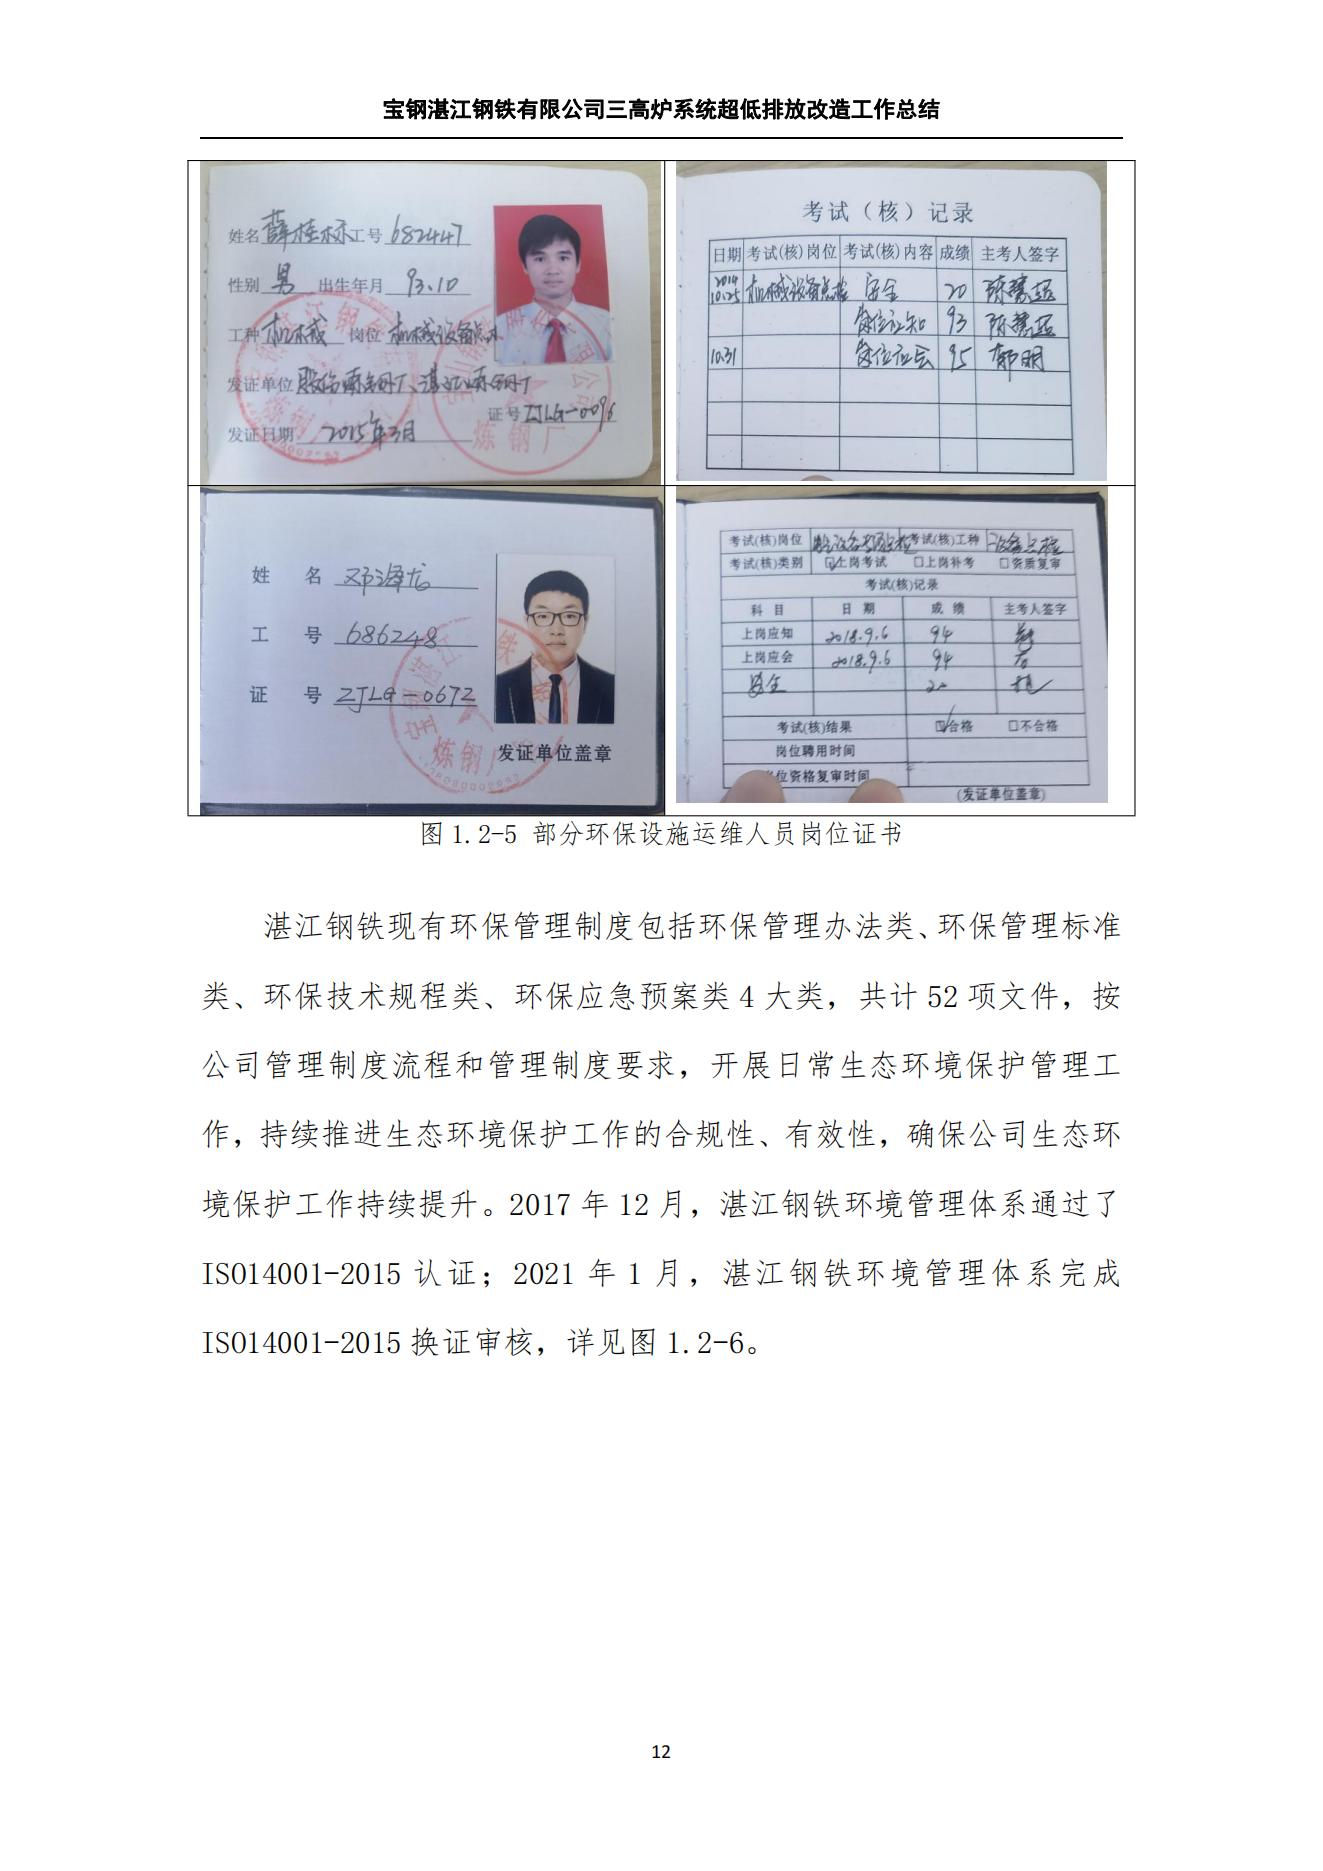 宝钢湛江钢铁有限公司三高炉系统超低排放改造工作总结
姓名 薛桂林 工号 682447
性别 男 出生年月 93.10
工种 机械 岗位 机械设备点
发证单位
证号 ZJLG-0096
发证日期 2015年3月
炼钢厂
考试（核）记录
日期 考试(核)岗位 考试(核)内容 成绩 主考人签字
2014 10.25 机械设备点检 安全 20
岗位应知 93
10.31 岗位应会 95 郭明
姓 名 邓海龙
工 号 686248
证 号 ZJLG-0672
发证单位盖章
炼钢厂
考试(核)岗位 考试(核)工种 设备点检
考试(核)类别 ☑上岗考试 □上岗补考 □资质复审
考试(核)记录
科 目 日 期 成 绩 主考人签字
上岗应知 2018.9.6 94
上岗应会 2018.9.6 94
安全 20
考试(核)结果 ☑合格 □不合格
岗位聘用时间
位资格复审时间
(发证单位盖章)
图 1.2-5 部分环保设施运维人员岗位证书
湛江钢铁现有环保管理制度包括环保管理办法类、环保管理标准
类、环保技术规程类、环保应急预案类 4 大类，共计 52 项文件，按
公司管理制度流程和管理制度要求，开展日常生态环境保护管理工
作，持续推进生态环境保护工作的合规性、有效性，确保公司生态环
境保护工作持续提升。2017 年 12 月，湛江钢铁环境管理体系通过了
ISO14001-2015 认证；2021 年 1 月，湛江钢铁环境管理体系完成
ISO14001-2015 换证审核，详见图 1.2-6。
12